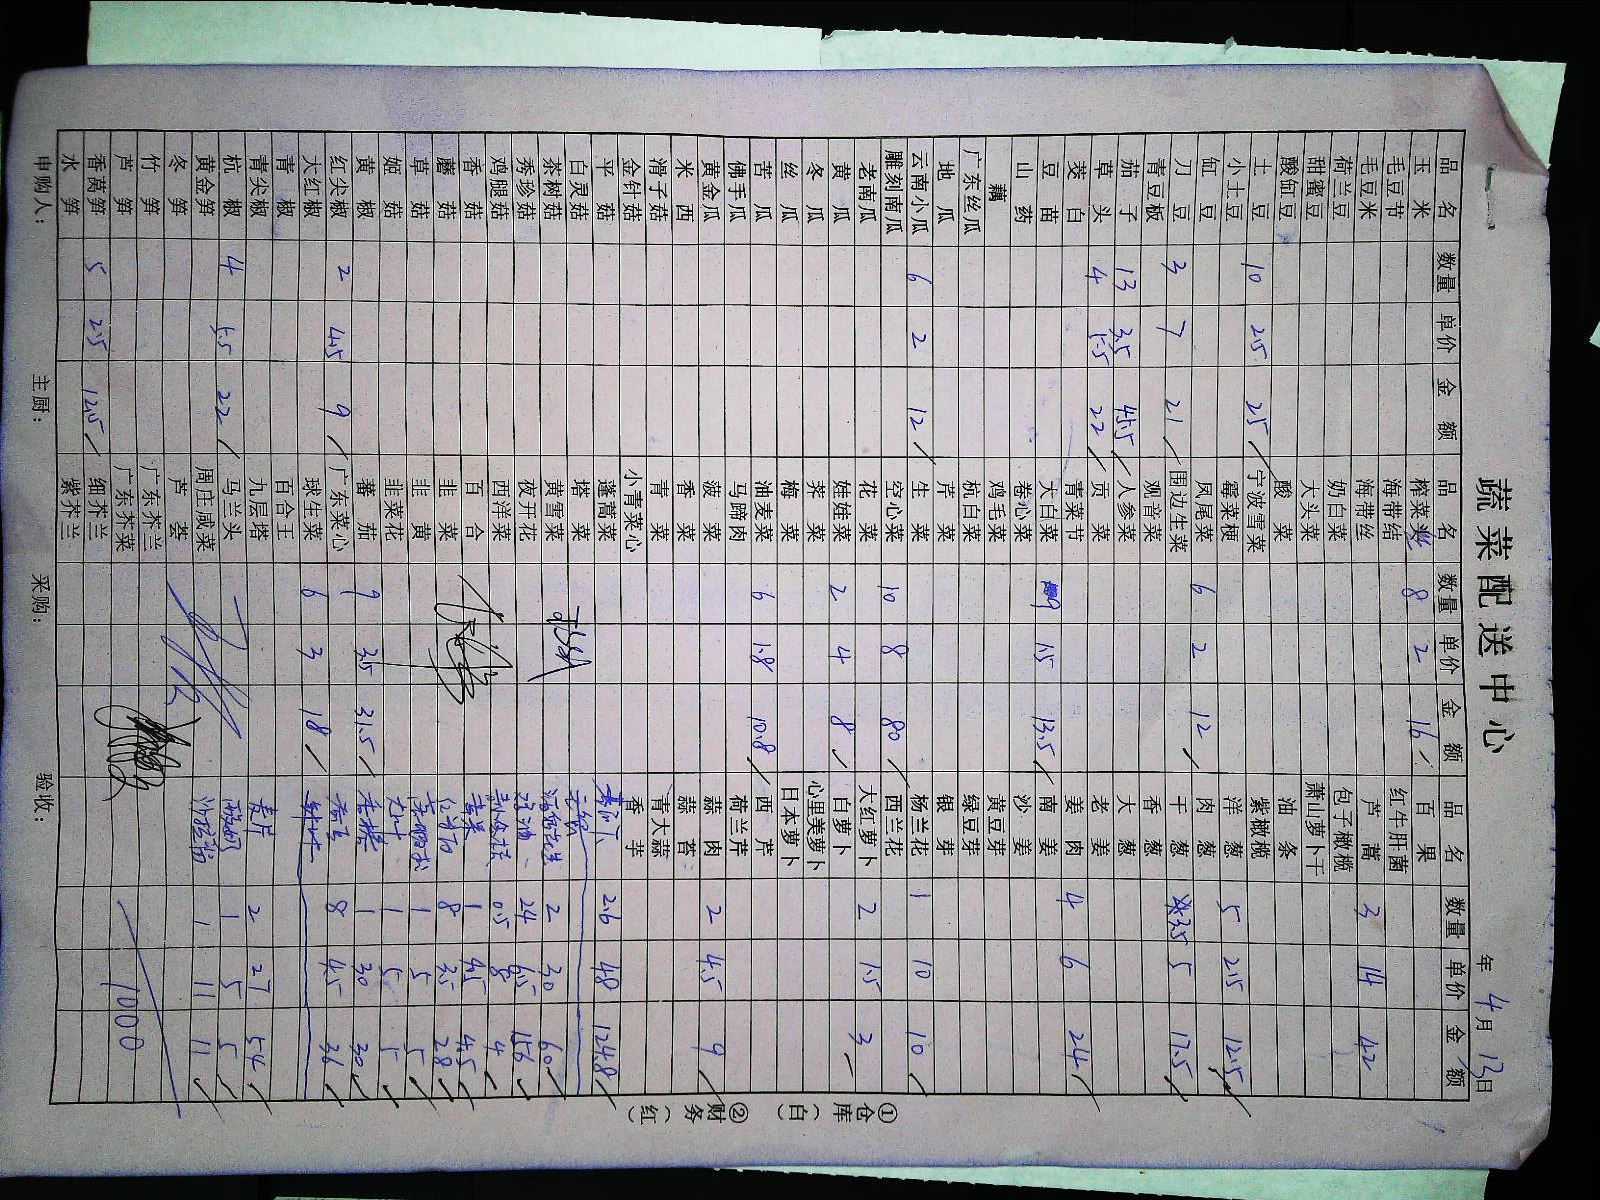 蔬菜配送中心
年 4月 13日
品名 数量 单价 金额 品名 数量 单价 金额 品名 数量 单价 金额
玉米 榨菜头丝 8 2 16 百果
毛豆节 海带结 红牛肝菌
毛豆米 海带丝 芦蒿 3 14 42
荷兰豆 奶白菜 包子橄榄
甜蜜豆 大头菜 萧山萝卜干
酸缸豆 酸菜 油条
土豆 10 2.5 25 宁波雪菜 紫橄榄
小土豆 霉菜梗 洋葱 5 2.5 12.5
缸豆 凤尾菜 6 2 12 肉葱
刀豆 3 7 21 围边生菜 干葱 3.5 5 17.5
青豆板 观音菜 香葱
茄子 13 3.5 45.5 人参菜 大葱
草头 4 5.5 22 贡菜 老姜
茭白 青菜节 姜肉 4 6 24
豆苗 大白菜 9 1.5 13.5 南姜
山药 卷心菜 沙姜
藕 鸡毛菜 黄豆芽
广东丝瓜 杭白菜 绿豆芽
地瓜 芹菜 银芽
云南小瓜 6 2 12 生菜 杨兰花 1 10 10
雕刻南瓜 空心菜 10 8 80 西兰花
老南瓜 花菜 大红萝卜 2 1.5 3
黄瓜 娃娃菜 2 4 8 白萝卜
冬瓜 荠菜 心里美萝卜
丝瓜 梅菜 日本萝卜
苦瓜 油麦菜 6 1.8 10.8 西芹
佛手瓜 马蹄肉 荷兰芹
黄金瓜 菠菜 蒜肉 2 4.5 9
米西 香菜 蒜苔
滑子菇 青菜 青大蒜
金针菇 小青菜心 香芋
平菇 蓬蒿菜 2.6 48 124.8
白灵菇 塔菜
茶树菇 黄雪菜 2 30 60
秀珍菇 夜开花 24 6.5 156
鸡腿菇 西洋菜 0.5 8 4
香菇 百合 1 4.5 4.5
蘑菇 韭菜 8 3.5 28
草菇 韭黄 1 5 5
姬菇 韭菜花 1 5 5
黄椒 蕃茄 9 3.5 31.5 1 30 30
红尖椒 2 4.5 9 广东菜心 8 4.5 36
大红椒 球生菜 6 3 18
青椒 百合王
青尖椒 九层塔 麦片 2 27 54
杭椒 4 5.5 22 马兰头 酸奶 1 5 5
黄金笋 周庄咸菜 1 11 11
冬笋 芦荟
竹笋 广东芥兰
芦笋 广东芥菜 1000
香莴笋 5 2.5 12.5 细芥兰
水笋 紫芥兰
申购人： 主厨： 采购： 验收：
①仓库（白） ②财务（红）